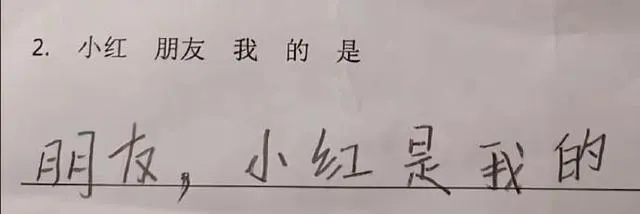 2. 小红 朋友 我 的 是
朋友，小红是我的